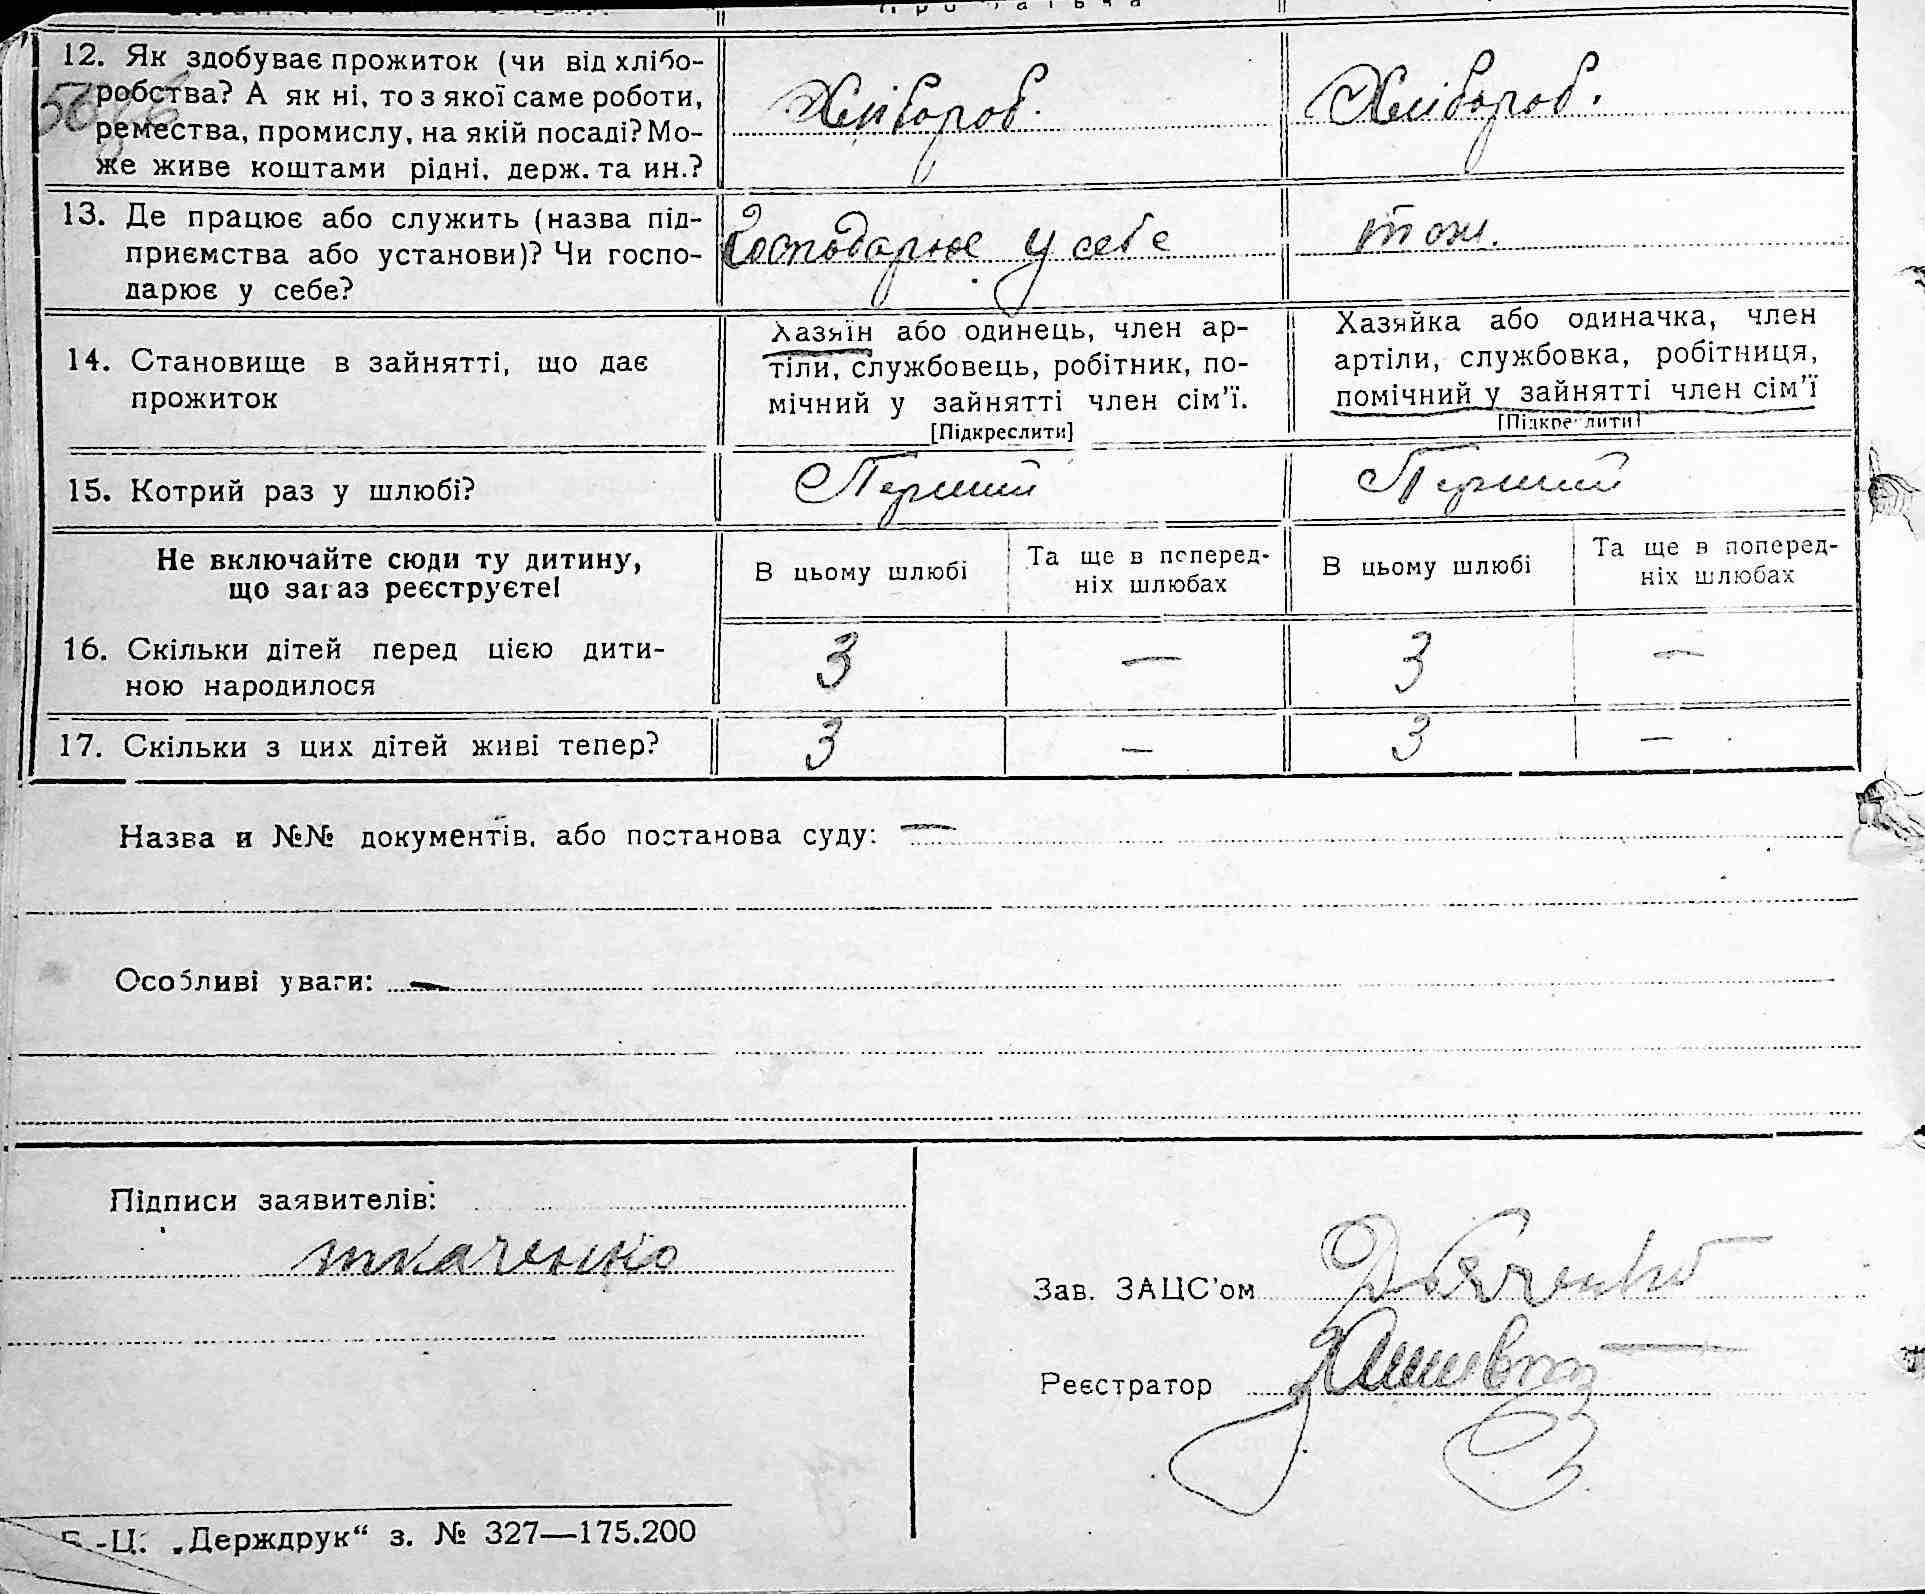 12. Як здобуває прожиток (чи від хлібо-
робства? А як ні, то з якої саме роботи,
ремества, промислу, на якій посаді? Мо-
же живе коштами рідні, держ. та ин.?
Хлібороб.
Хлібороб.
13. Де працює або служить (назва під-
приємства або установи)? Чи госпо-
дарює у себе?
Господарює у себе
тож.
14. Становище в зайнятті, що дає
прожиток
Хазяїн або одинець, член ар-
тіли, службовець, робітник, по-
мічний у зайнятті член сім'ї.
[Підкреслити]
Хазяйка або одиначка, член
артіли, службовка, робітниця,
помічний у зайнятті член сім'ї
[Підкреслити]
15. Котрий раз у шлюбі?
Перший
Перший
Не включайте сюди ту дитину,
що зараз реєструєте!
В цьому шлюбі
Та ще в поперед-
ніх шлюбах
В цьому шлюбі
Та ще в поперед-
ніх шлюбах
16. Скільки дітей перед цією дити-
ною народилося
3 — 3 —
17. Скільки з цих дітей живі тепер?
3 — 3 —
Назва и №№ документів, або постанова суду: —
Особливі уваги: —
Підписи заявителів:
ткаченко
Зав. ЗАЦС'ом Дьяченко
Реєстратор
-Ц. „Держдрук“ з. № 327—175.200